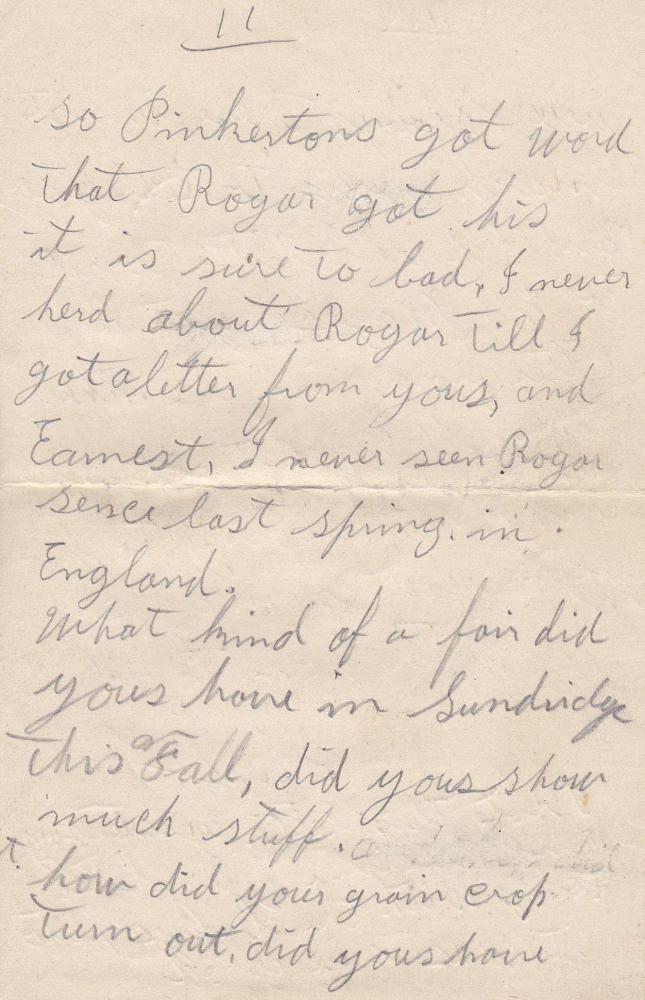 11
so Pinkertons got word
that Rogar got his
it is sure to bad, I never
herd about Rogar till I
got a letter from yous, and
Earnest, I never seen Rogar
sence last spring in
England.
What kind of a fair did
yous have in Sundridge
this Fall, did yous show
much stuff.
how did your grain crop
turn out, did yous have